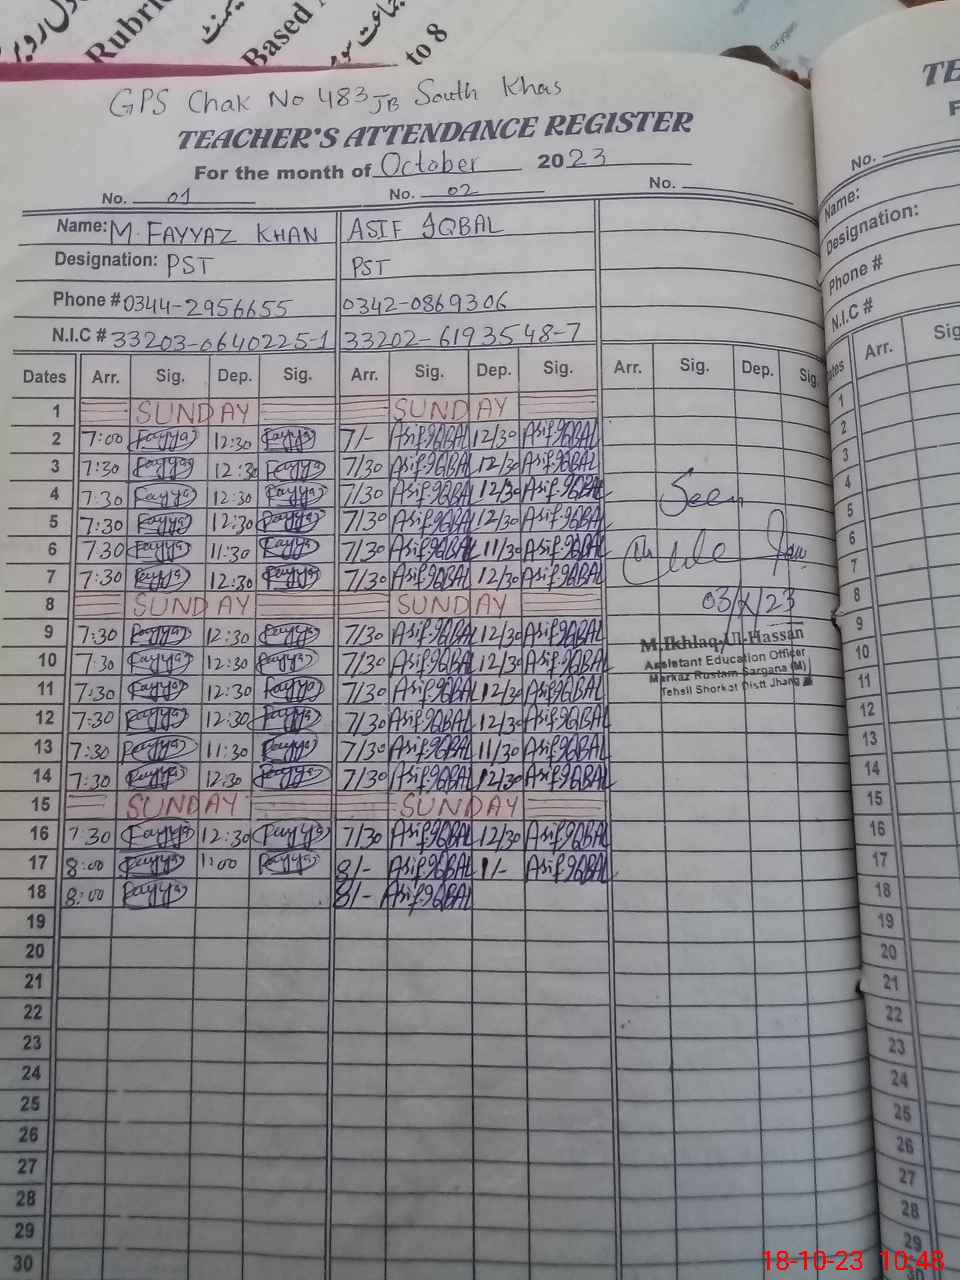 Rubri
Based
to 8
GPS Chak No 483 JB South Khas
TEACHER'S ATTENDANCE REGISTER
For the month of October 2023
No. 01 No. 02 No.
Name: M. FAYYAZ KHAN ASIF IQBAL
Designation: PST PST
Phone # 0344-2956655 0342-0869306
N.I.C # 33203-0640225-1 33202-6193548-7
Dates Arr. Sig. Dep. Sig. Arr. Sig. Dep. Sig. Arr. Sig. Dep. Sig.
1 SUNDAY SUNDAY
2 7:00 Fayyaz 12:30 Fayyaz 7/- Asif IQBAL 12/30 Asif IQBAL
3 7:30 Fayyaz 12:30 Fayyaz 7/30 Asif IQBAL 12/30 Asif IQBAL
4 7:30 Fayyaz 12:30 Fayyaz 7/30 Asif IQBAL 12/30 Asif IQBAL
5 7:30 Fayyaz 12:30 Fayyaz 7/30 Asif IQBAL 12/30 Asif IQBAL
6 7:30 Fayyaz 11:30 Fayyaz 7/30 Asif IQBAL 11/30 Asif IQBAL
7 7:30 Fayyaz 12:30 Fayyaz 7/30 Asif IQBAL 12/30 Asif IQBAL
8 SUNDAY SUNDAY
9 7:30 Fayyaz 12:30 Fayyaz 7/30 Asif IQBAL 12/30 Asif IQBAL
10 7:30 Fayyaz 12:30 Fayyaz 7/30 Asif IQBAL 12/30 Asif IQBAL
11 7:30 Fayyaz 12:30 Fayyaz 7/30 Asif IQBAL 12/30 Asif IQBAL
12 7:30 Fayyaz 12:30 Fayyaz 7/30 Asif IQBAL 12/30 Asif IQBAL
13 7:30 Fayyaz 11:30 Fayyaz 7/30 Asif IQBAL 11/30 Asif IQBAL
14 7:30 Fayyaz 12:30 Fayyaz 7/30 Asif IQBAL 12/30 Asif IQBAL
15 SUNDAY SUNDAY
16 7:30 Fayyaz 12:30 Fayyaz 7/30 Asif IQBAL 12/30 Asif IQBAL
17 8:00 Fayyaz 1:00 Fayyaz 8/- Asif IQBAL 1/- Asif IQBAL
18 8:00 Fayyaz 8/- Asif IQBAL
19
20
21
22
23
24
25
26
27
28
29
30
Seen
03/X/23
M.Ikhlaq-Ul-Hassan
Assistant Education Officer
Markaz Rustam Sargana (M)
Tehsil Shorkot Distt Jhang
TE
F
No.
Name:
Designation:
Phone #
N.I.C #
Dates Arr. Sig
1
2
3
4
5
6
7
8
9
10
11
12
13
14
15
16
17
18
19
20
21
22
23
24
25
26
27
28
29
30
18-10-23 10:48